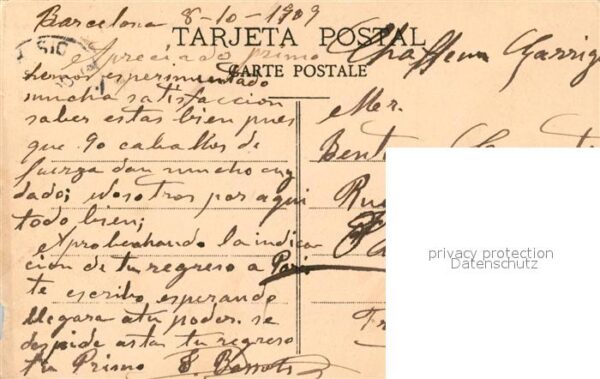 Barcelona 8-10-1909
TARJETA POSTAL
CARTE POSTALE
Apreciado primo
hemos esperimentado
mucha satisfaccion
saber estas bien pues
que 90 caballos de
fuerza dan mucho cuy
dado; nosotros por aqui
todo bien;
Aprobechando la indica
cion de tu regreso a Paris
te escribo esperando
llegara atu poder. se
despide asta tu regreso
tu Primo
Mer.
Rue
privacy protection
Datenschutz